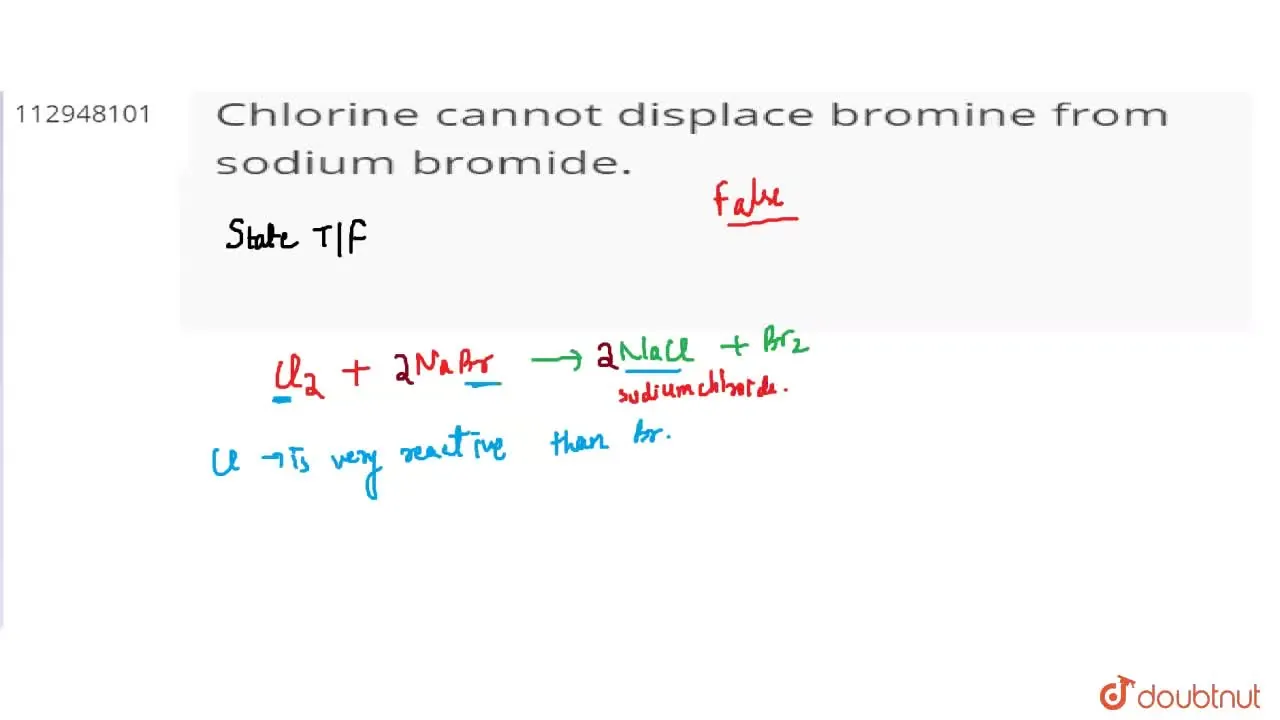 112948101
Chlorine cannot displace bromine from
sodium bromide.
False
State T/F
Cl2 + 2NaBr → 2NaCl + Br2
sodium chloride.
Cl → is very reactive than Br.
doubtnut